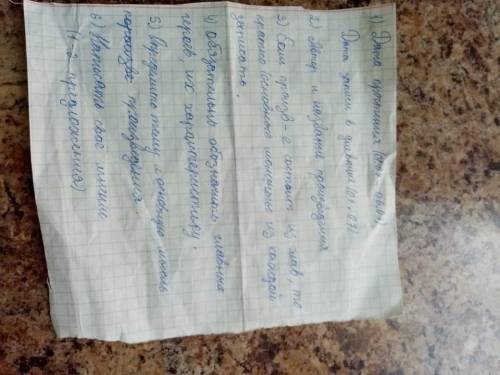 1) Дата прочтения (
Дата записи в дневнике (
2) Автор и название произведения
3) Если произв-е состоит из глав, то
кратко (основные моменты) из каждой
записать.
4) обязательно обозначить главных
героев, их характеристику.
5) Определить тему и основную мысль
произведения.
6) Написать своё мнение
предложения)